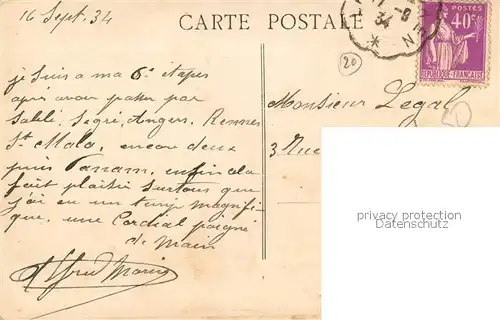 16 Sept. 34
CARTE POSTALE
POSTES
40c
REPUBLIQUE FRANÇAISE
20
je suis a ma 6e etapes
après avoir passer par
Sablé, Segré, Angers, Rennes
St Malo, encore deux
puis Panam, enfin cela
fait plaisir surtout que
j'ai eu un temp magnifi-
que, une Cordial poigné
de Main
Alfred
Monsieur Legal
3 Rue
privacy protection
Datenschutz